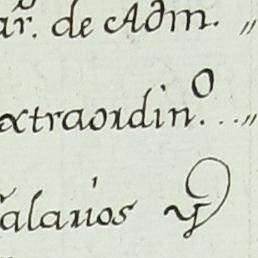 ar. de Adm. „
extraordin.º...„
Salarios y